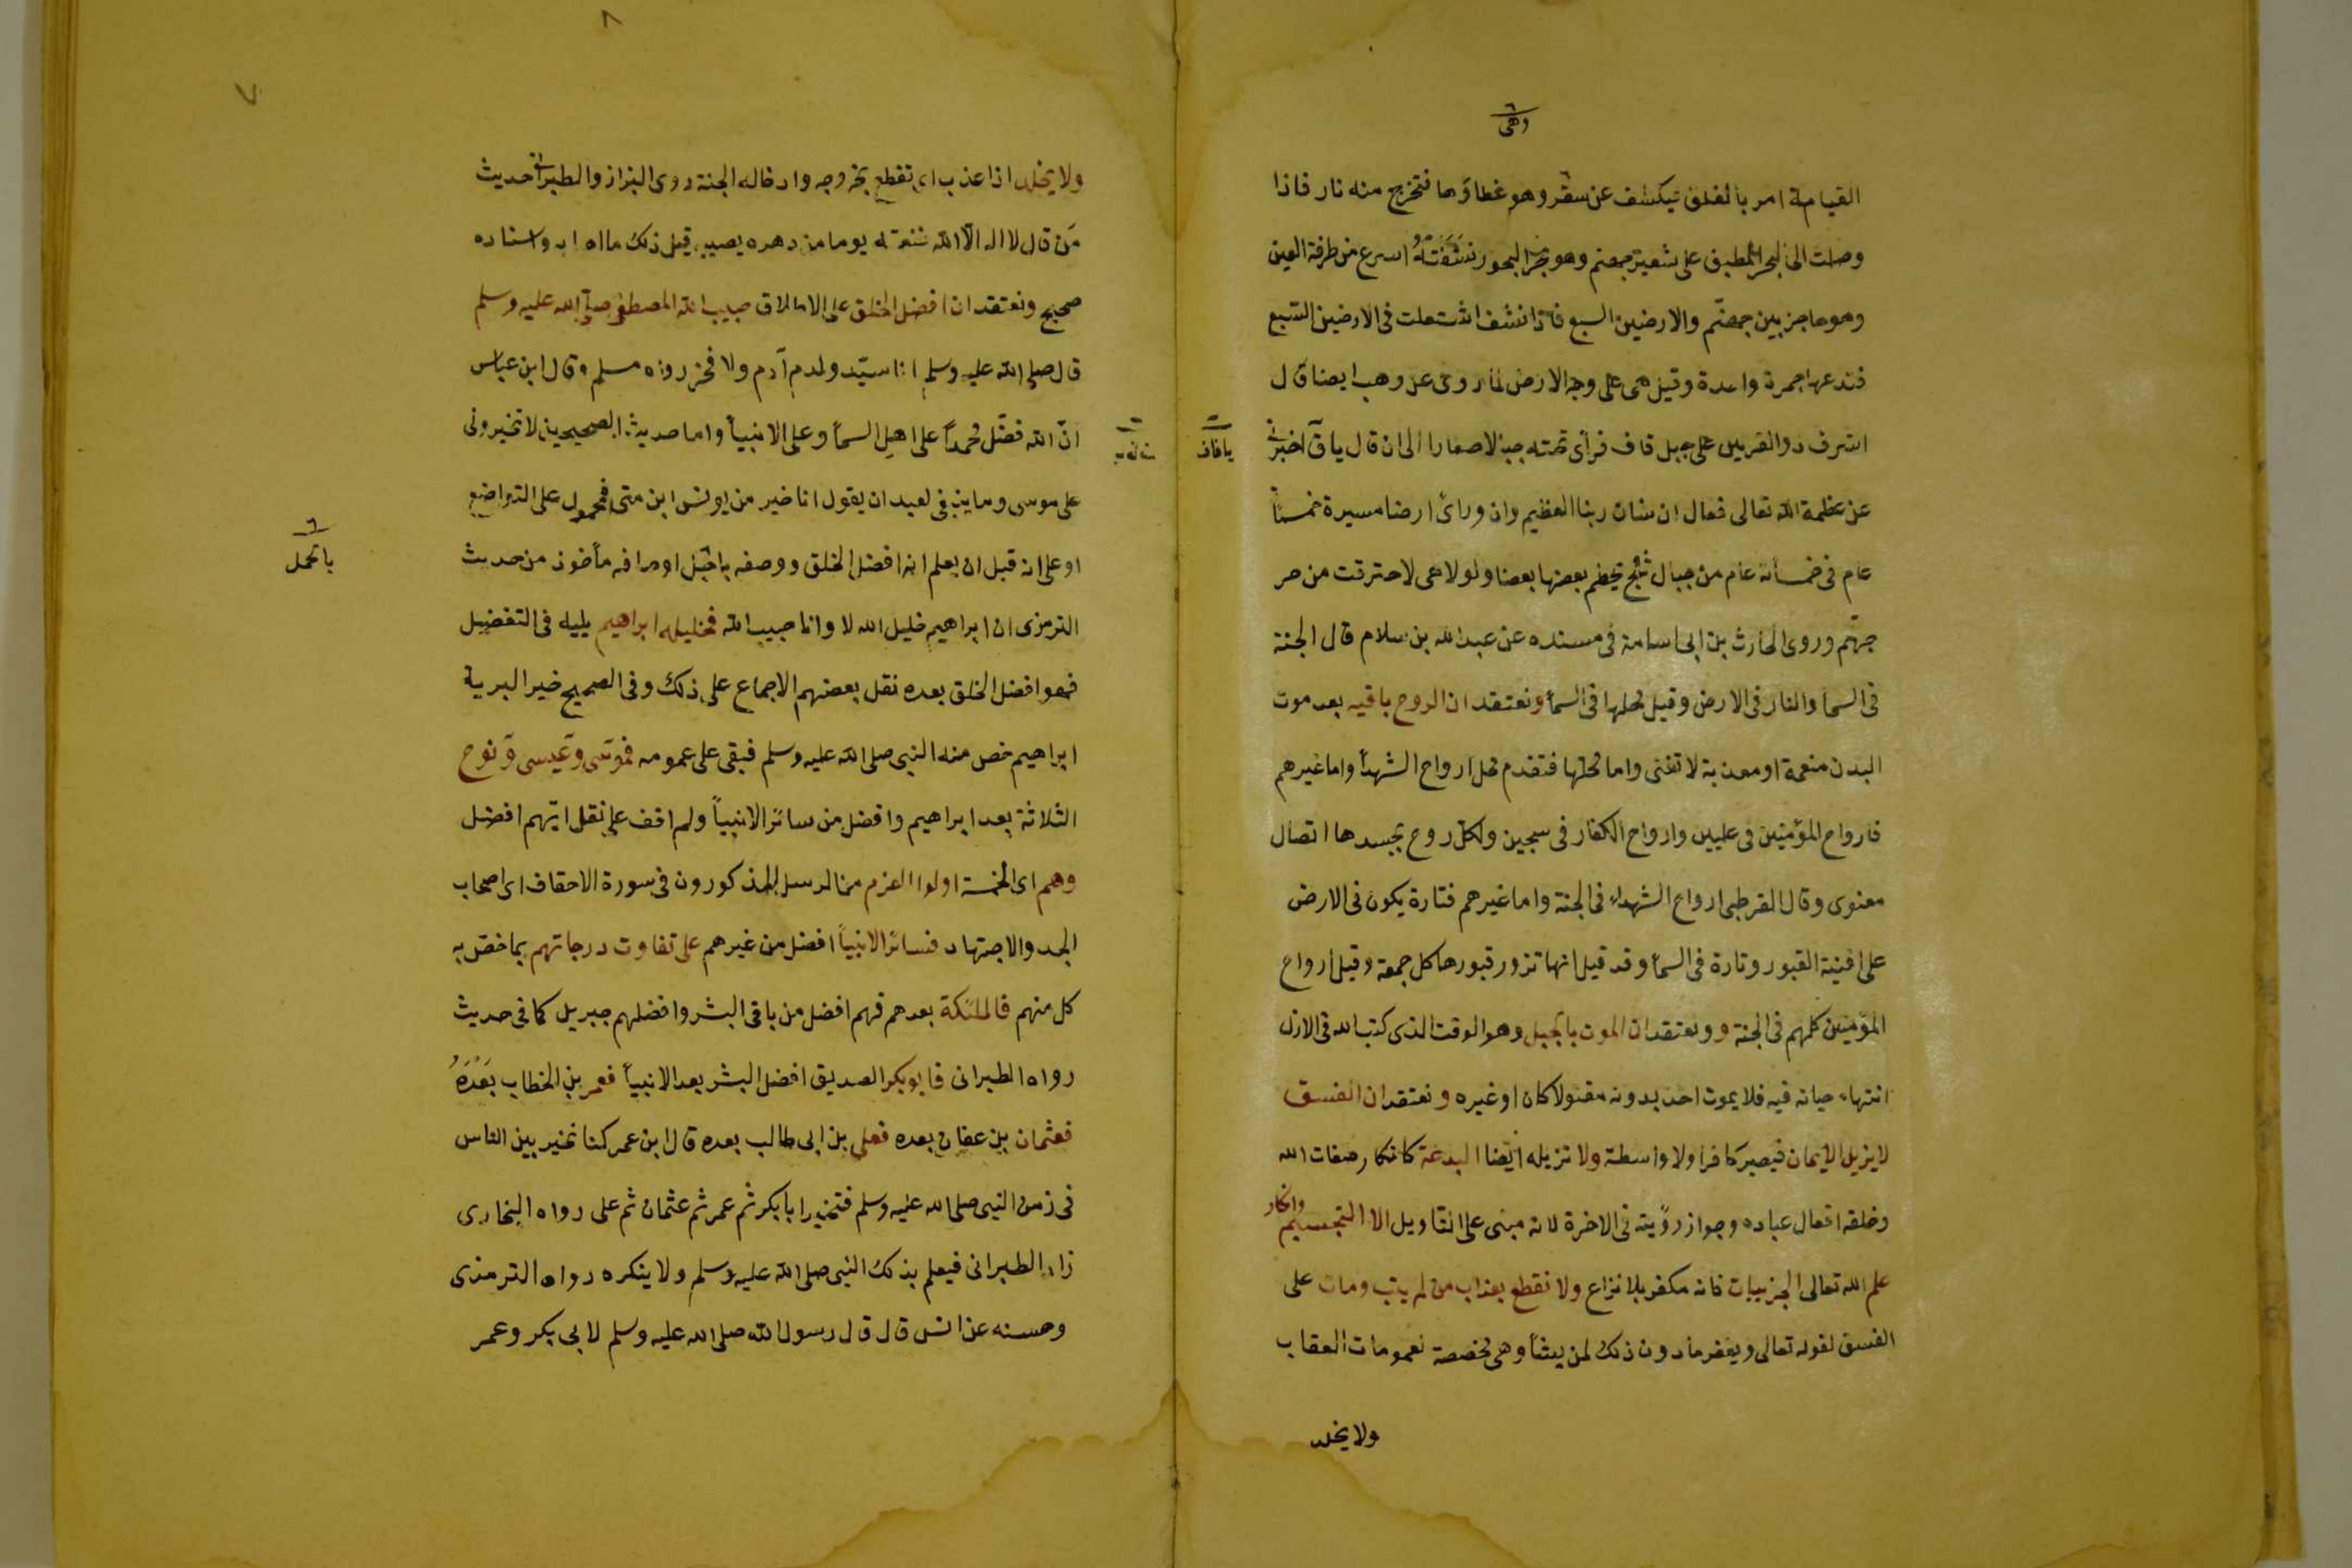 وهي
القيامة امر بالفلق فيكشف عن سقر وهو غطاؤها فتخرج منه نار فاذا
وصلت الى البحر المطبق على شفير جهنم وهو بحر البحور نشفته اسرع من طرفة العين
وهو حاجز بين جهنم والارضين السبع فاذا نشف اشتعلت في الارضين السبع
فتدعها جمرة واحدة وقيل هي على وجه الارض لما روى عن وهب ايضا قال
اشرف ذو القرنين على جبل قاف فرأى تحته جبالا صغارا الى ان قال يا ق اخبرني
يا قاف
عن عظمة الله تعالى فقال ان شان ربنا العظيم وان ورائ ارضا مسيرة خمسمائة
عام في خمسمائة عام من جبال ثلج يحطم بعضها بعضا ولولا هي لاحترقت من حر
جهنم وروى الحارث بن ابى اسامة في مسنده عن عبدالله بن سلام قال الجنة
في السمأ والنار في الارض وقيل محلها في السمأ ونعتقد ان الروح باقيه بعد موت
البدن منعمة او معذبة لا تفنى واما محلها فتقدم محل ارواح الشهدأ واما غيرهم
فارواح المؤمنين في عليين وارواح الكفار في سجين ولكل روح بجسدها اتصال
معنوى وقال القرطبى ارواح الشهداء في الجنة واما غيرهم فتارة يكون في الارض
على افنية القبور وتارة في السمأ وقد قيل انها تزور قبورها كل جمعة وقيل ارواح
المؤمنين كلهم في الجنة و ونعتقد ان الموت بأجل وهو الوقت الذى كتب الله في الازل
انتهاء حياته فيه فلا يموت احد بدونه مقتولا كان او غيره ونعتقد ان الفسق
لا يزيل الايمان فيصير كافرا ولا واسطة ولا تزيله ايضا البدعة كانكار صفات الله
وخلقه افعال عباده وجواز رؤيته في الاخرة لانه مبنى على التأويل الا التجسيم وانكار
علم الله تعالى الجزئيات فانه مكفر بلا نزاع ولا نقطع بعذاب من لم يتب ومات على
الفسق لقوله تعالى ويغفر ما دون ذلك لمن يشأ وهي مخصصة لعمومات العقاب
ولا يخلد
٨
٧
ولا يخلد اذا عذب اى نقطع بخروجه وادخاله الجنة روى البزاز والطبرانى حديث
من قال لا اله الا الله نفعته يوما من دهره يصيبه قبل ذلك ما اصابه واسناده
صحيح ونعتقد ان افضل الخلق على الاطلاق حبيب الله المصطفى صلى الله عليه وسلم
قال صلى الله عليه وسلم انا سيد ولد آدم ولا فخر رواه مسلم وقال ابن عباس
ان الله فضل محمداً على اهل السمأ وعلى الانبيأ واما حديث الصحيحين لا تخيرونى
على موسى وما ينبغى لعبد ان يقول انا خير من يونس ابن متى فمحمول على التواضع
او على انه قبل ان يعلم انه افضل الخلق ووصفه
الترمزى ان ابراهيم خليل الله لا وانا حبيب الله فخليله ابراهيم يليه في التفضيل
فهو افضل الخلق بعده نقل بعضهم الاجماع على ذلك وفى الصحيح خير البرية
ابراهيم خص منه النبى صلى الله عليه وسلم فبقى على عمومه فموسى وعيسى ونوح
الثلاثة بعد ابراهيم وافضل من سائر الانبيأ ولم اقف على نقل ايهم افضل
وهم اى الخمسة اولوا العزم من الرسل المذكورون في سورة الاحقاف اى اصحاب
الجد والاجتهاد فسائر الانبيأ افضل من غيرهم على تفاوت درجاتهم بما خص به
كل منهم فالملئكة بعدهم فهم افضل من باقى البشر وافضلهم جبريل كما في حديث
رواه الطبرانى فابو بكر الصديق افضل البشر بعد الانبيأ فعمر بن الخطاب بعده
فعثمان بن عفان بعده فعلى بن ابى طالب بعده قال ابن عمر كنا نخير بين الناس
في زمن النبى صلى الله عليه وسلم فنخير ابا بكر ثم عمر ثم عثمان ثم على رواه البخارى
زاد الطبرانى فيعلم بذلك النبى صلى الله عليه وسلم ولا ينكره رواه الترمذى
وحسنه عن انس قال قال رسول الله صلى الله عليه وسلم لابى بكر وعمر